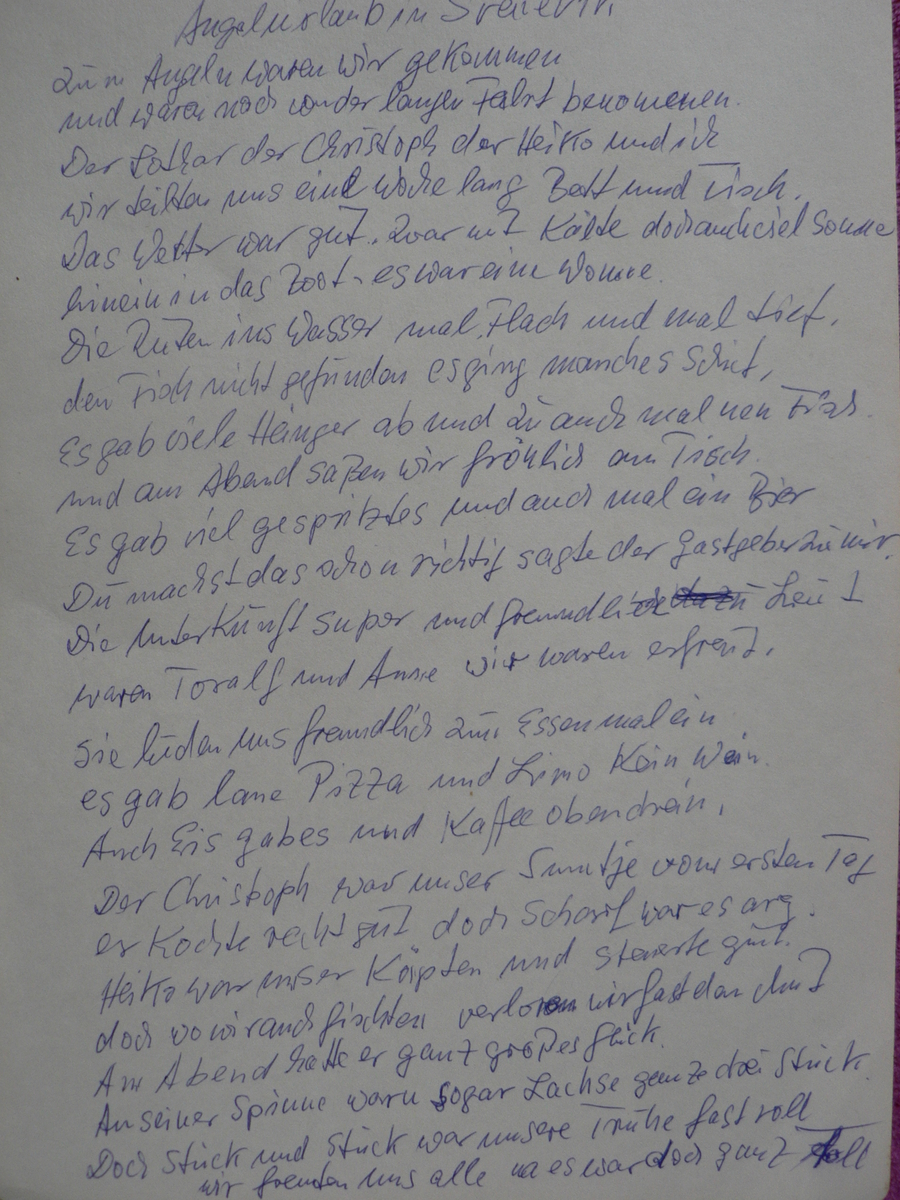 Angelurlaub in
Zum Angeln waren wir gekommen
und waren noch von der langen Fahrt benommen.
Der Lothar der Christoph der Heiko und ich
wir teilten uns eine Woche lang Bett und Tisch.
Das Wetter war gut. Zwar mit Kälte doch auch viel Sonne
hinein in das Boot - es war eine Wonne.
Die Ruten ins Wasser mal Flach und mal tief,
den Fisch nicht gefunden es ging manches Schief,
Es gab viele Hänger ab und zu auch mal nen Fisch.
und am Abend saßen wir fröhlich am Tisch.
Es gab viel gespritztes und auch mal ein Bier
Du machst das schon richtig sagte der Gastgeber zu mir.
Die Unterkunft super und freundliche Leut
waren Toralf und Anne wir waren erfreut.
Sie luden uns freundlich zum Essen mal ein
es gab Pizza und Limo Kein Wein.
Auch Eis gab es und Kaffee obendrein.
Der Christoph war unser Smutje vom ersten Tag
er Kochte recht gut doch Scharf war es arg.
Heiko war unser Käpten und steuerte gut.
doch wo wir auch fischten verloren wir fast den Mut
Am Abend hatte er ganz großes Glück.
An seiner Spinne warn sogar Lachse ganze drei Stück.
Doch Stück und Stück war unsere Truhe fast voll
wir freuten uns alle na es war doch ganz toll